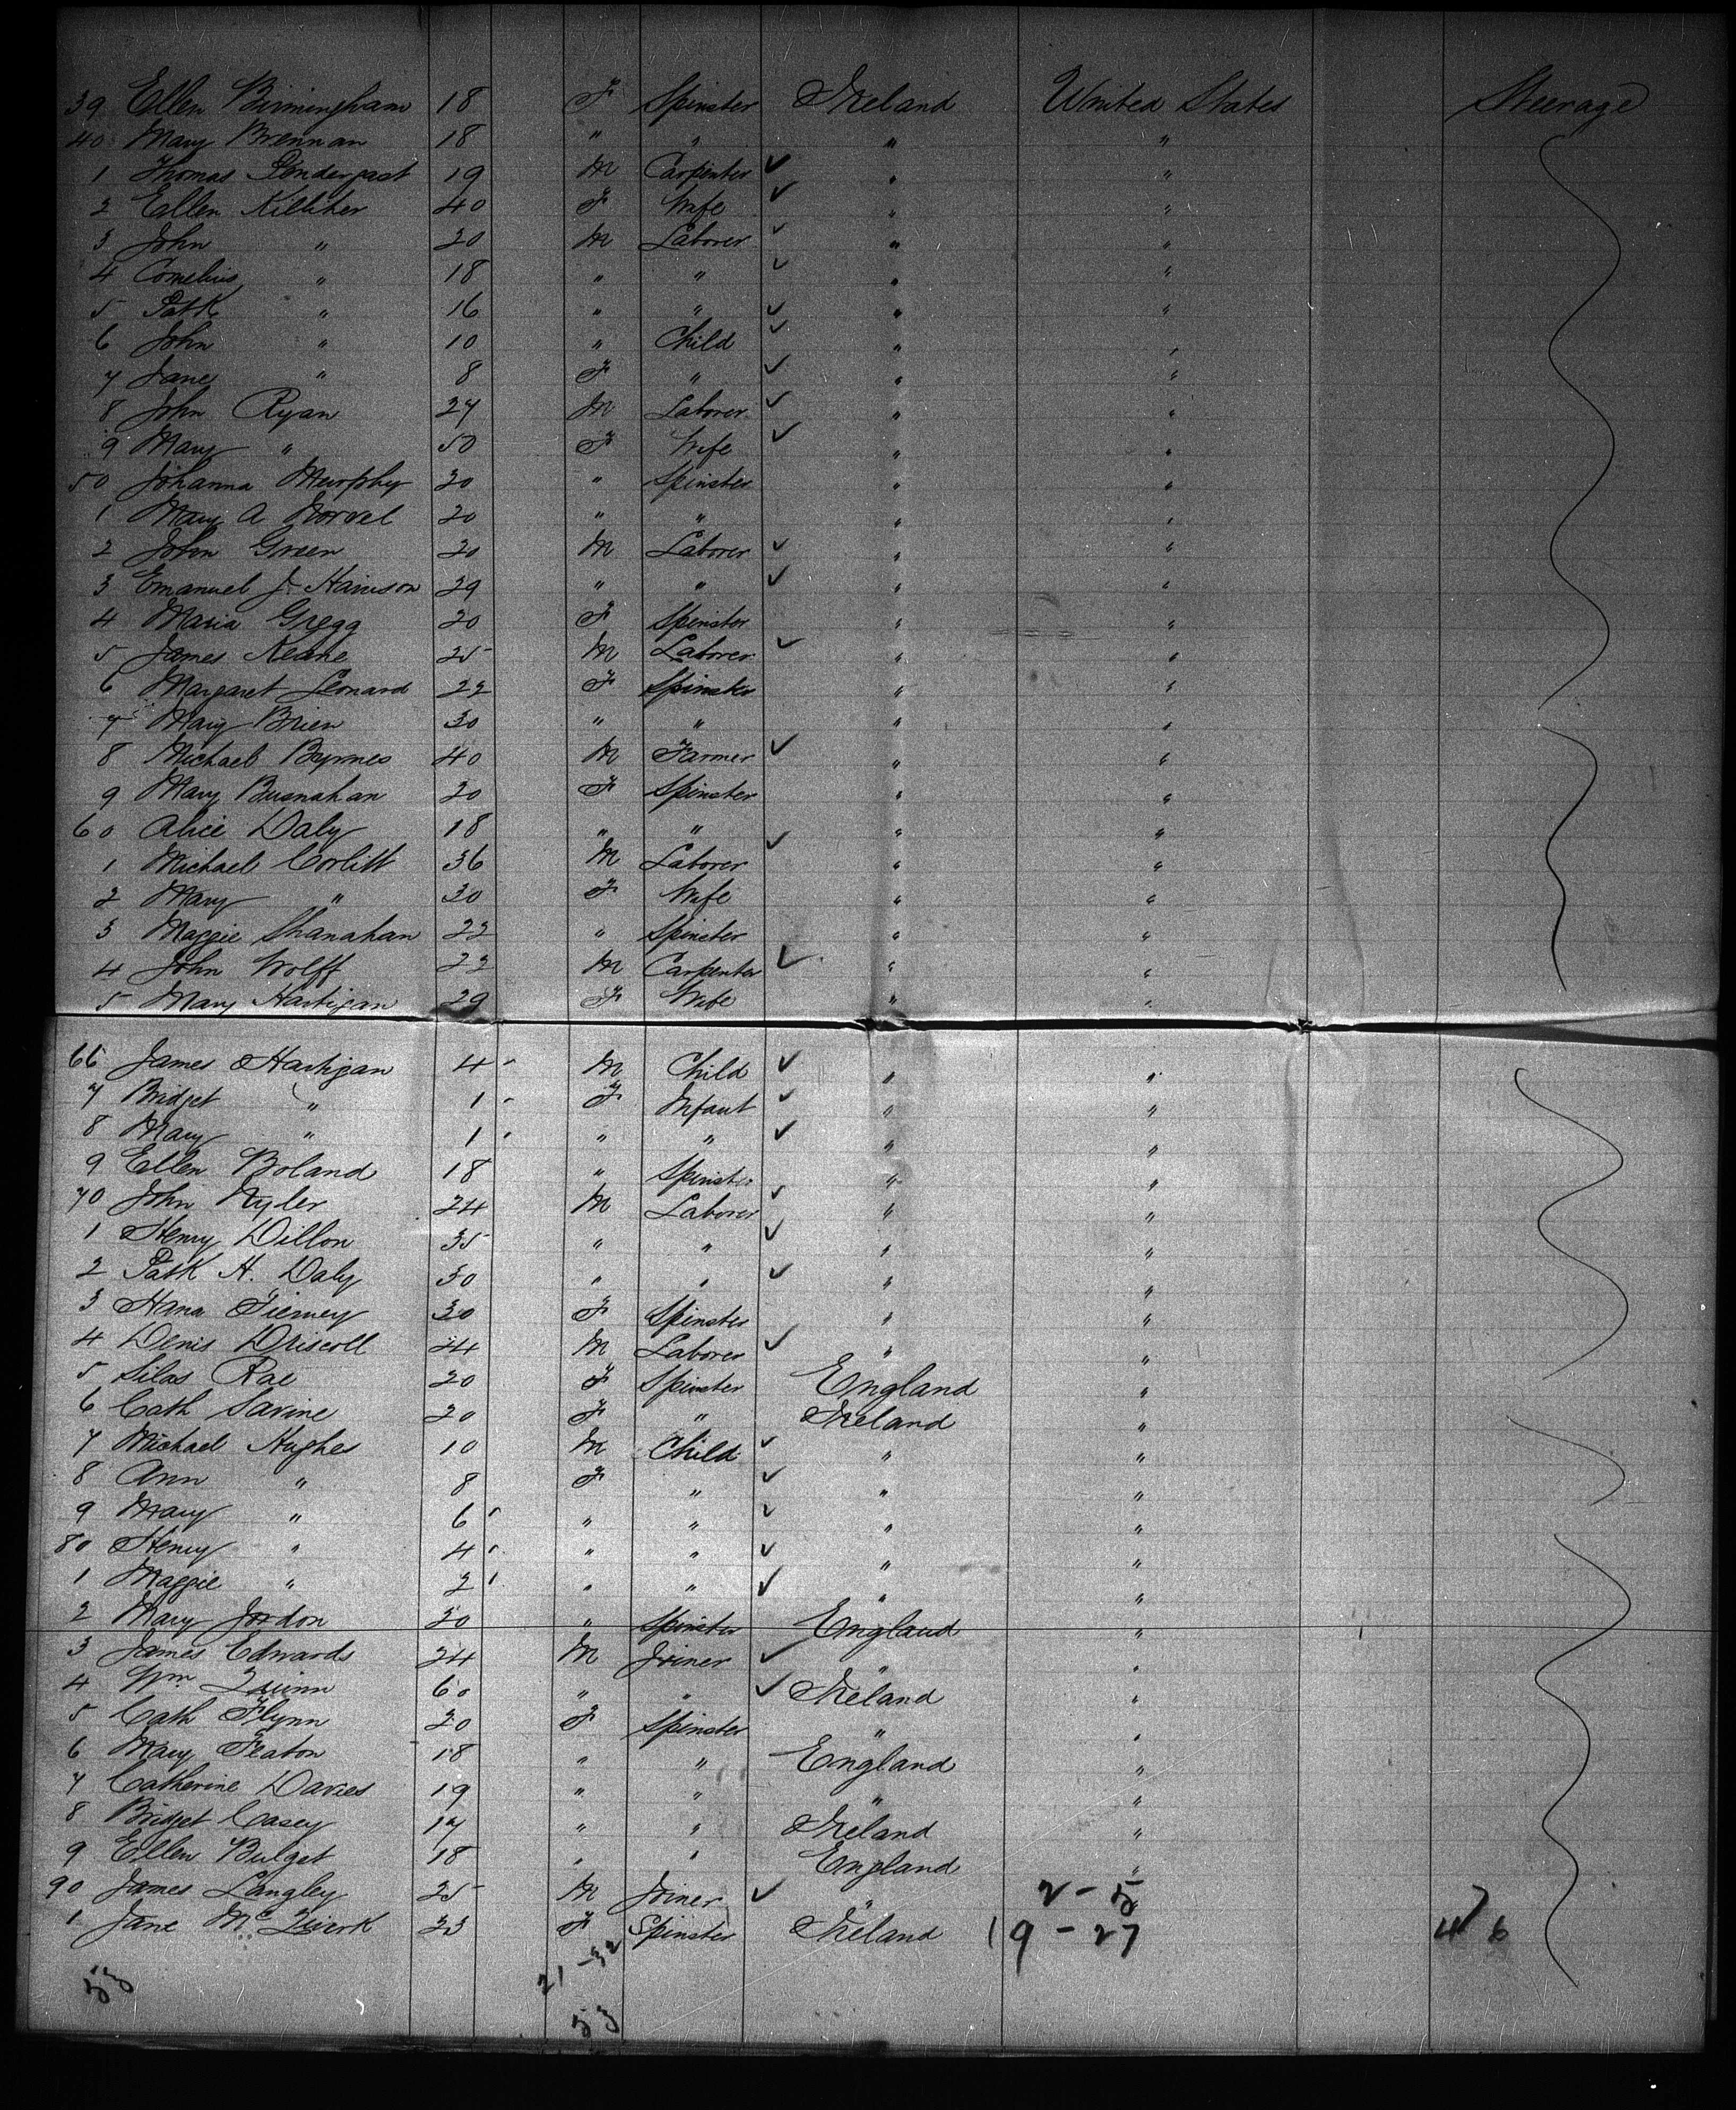 39 Ellen Birmingham 18 F Spinster Ireland United States Steerage
40 Mary Brennan 18 " " " "
1 Thomas Pendergast 19 M Carpenter ✓ " "
2 Ellen Killiher 40 F Wife ✓ " "
3 John " 20 M Laborer ✓ " "
4 Cornelius " 18 " " ✓ " "
5 Patk " 16 " " ✓ " "
6 John " 10 " Child ✓ " "
7 Jane " 8 F " ✓ " "
8 John Ryan 27 M Laborer ✓ " "
9 Mary " 50 F Wife ✓ " "
50 Johanna Murphy 20 " Spinster " "
1 Mary A 20 " " " "
2 John Green 20 M Laborer ✓ " "
3 Emanuel J. Harrison 29 " " ✓ " "
4 Maria Gregg 20 F Spinster " "
5 James Keane 25 M Laborer ✓ " "
6 Margaret Leonard 22 F Spinster " "
7 Mary Brien 30 " " " "
8 Michael Byrnes 40 M Farmer ✓ " "
9 Mary 20 F Spinster " "
60 Alice Daly 18 " " " "
1 Michael Corlitt 36 M Laborer ✓ " "
2 Mary " 30 F Wife " "
3 Maggie Shanahan 22 " Spinster " "
4 John Wolff 22 M Carpenter ✓ " "
5 Mary Hartigan 29 F Wife " "
66 James Hartigan 4 M Child ✓ " "
7 Bridget " 1 F Infant ✓ " "
8 Mary " 1 " " ✓ " "
9 Ellen Boland 18 " Spinster " "
70 John Nyler 24 M Laborer ✓ " "
1 Henry Dillon 35 " " ✓ " "
2 Patk H. Daly 30 " " ✓ " "
3 Hana Tierney 30 F Spinster " "
4 Denis Driscoll 24 M Laborer ✓ " "
5 Silas Rae 20 F Spinster England "
6 Cath Savine 20 F " Ireland "
7 Michael Hughes 10 M Child ✓ " "
8 Ann " 8 F " ✓ " "
9 Mary " 6 " " ✓ " "
80 Henry " 4 " " ✓ " "
1 Maggie " 2 " " ✓ " "
2 Mary Jordon 20 " Spinster England "
3 James Edwards 24 M Joiner ✓ " "
4 Wm. Quinn 60 " " ✓ Ireland "
5 Cath Flynn 20 F Spinster " "
6 Mary Featon 18 " " England "
7 Catherine Davies 19 " " " "
8 Bridget Casey 17 " " Ireland "
9 Ellen Bulget 18 " " England "
90 James Langley 25 M Joiner ✓ " 2-5
1 Jane McQuerk 23 F Spinster Ireland 19-27 46
21-32
53
53